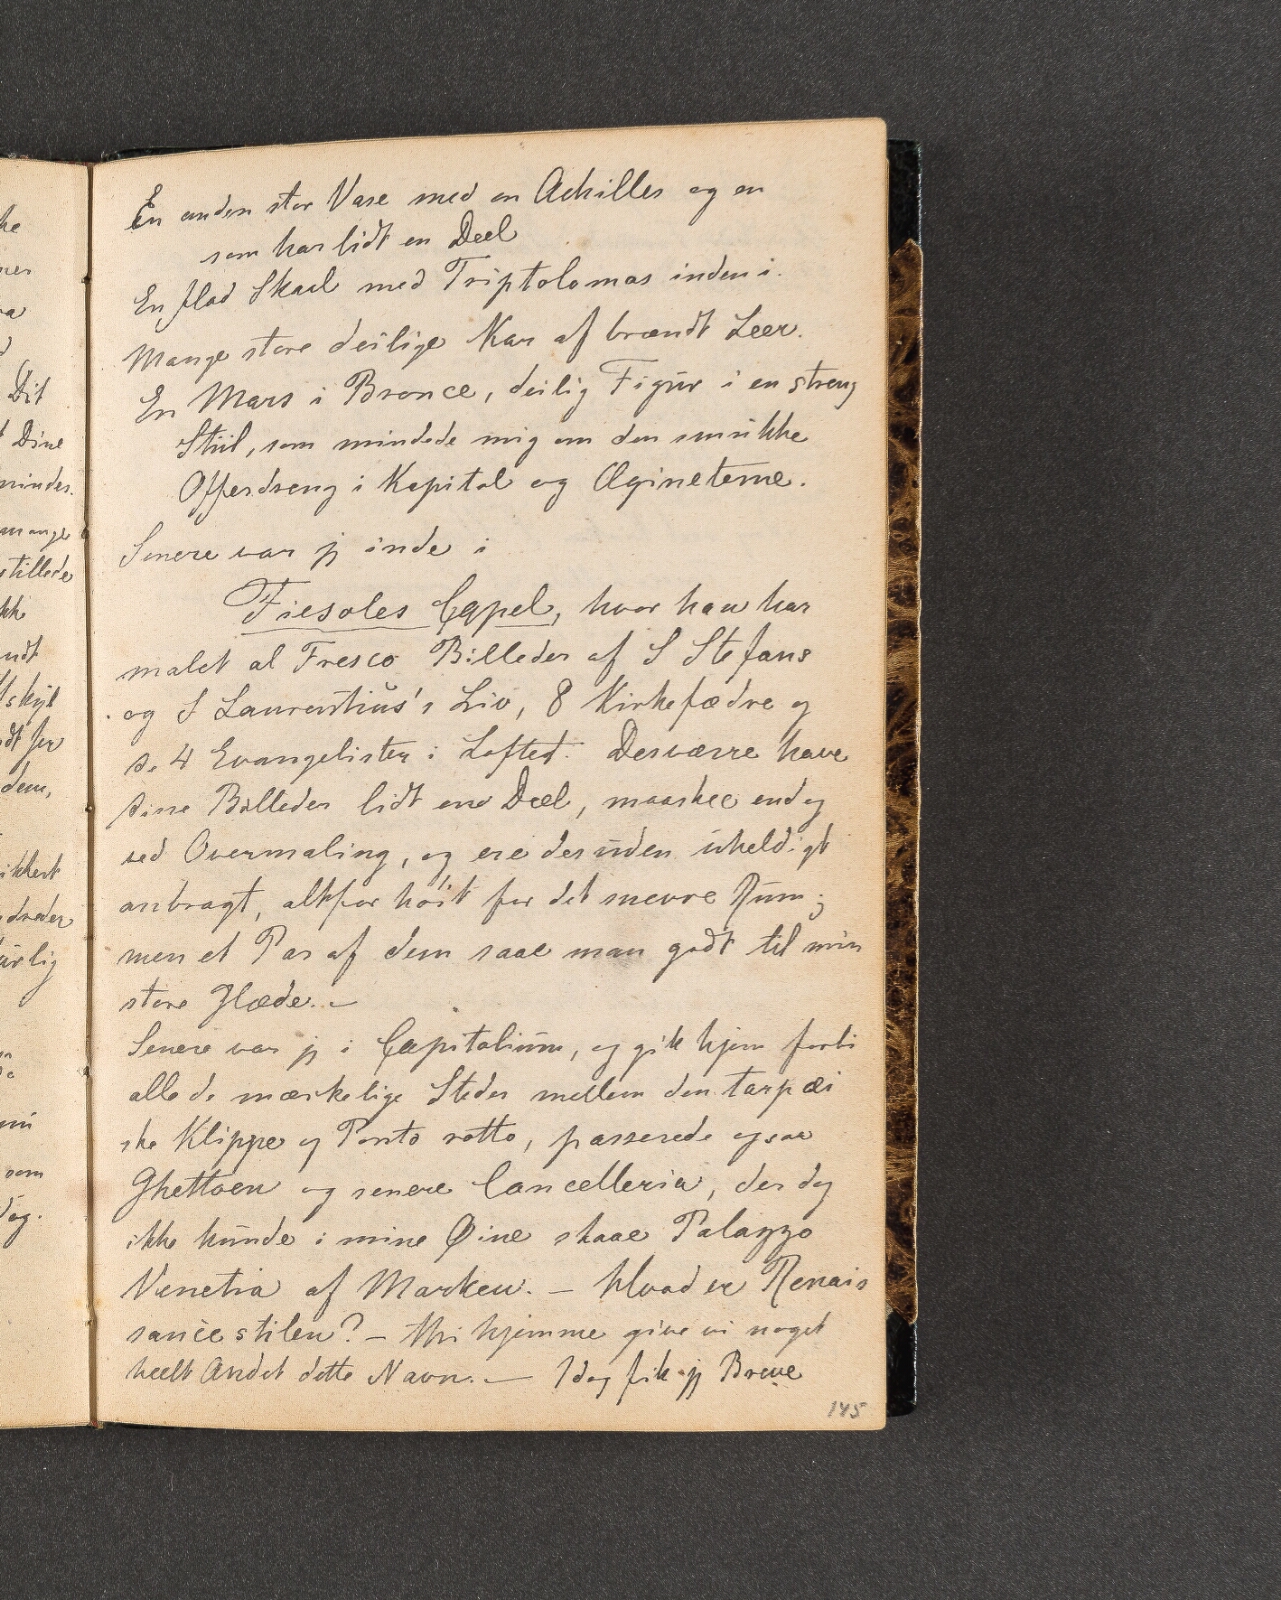 En anden stor Vase med en Achilles og en
som har lidt en Deel
En flad Skaal med Triptolomos inden i.
Mange store deilige Kar af brændt Leer.
En Mars i Bronce, deilig Figur i en streng
Stiil, som mindede mig om den smukke
Offerdreng i Kapitol og Ægineterne.
Senere var jg inde i
Fiesoles Capel, hvor han har
malet al Fresco Billeder af S Stefans
og S Laurentius's Liv, 8 Kirkefædre og
de 4 Evangelister i Loftet. Desværre have
disse Billeder lidt en Deel, maaskee endog
ved Overmaling, og ere desuden uheldigt
anbragt, altfor höit for det snevre Rum;
men et Par af dem saae man godt til min
store Glæde. —
Senere var jg i Capitolium, og gik hjem forbi
alle de mærkelige Steder mellem den tarpæi
ske Klippe og Ponto rotto, passerede ogsaa
Ghettoen og senere Cancelleria, der dog
ikke kunde i mine Øine slaae Palazzo
Venetia af Marken. — Hvad er Renais
sancestilen? — Thi hjemme give vi noget
heelt Andet dette Navn. — Idag fik jg Breve
145
he
ner
Dit
Dine
mindes.
mange
stillede
dem,
ikkert
som